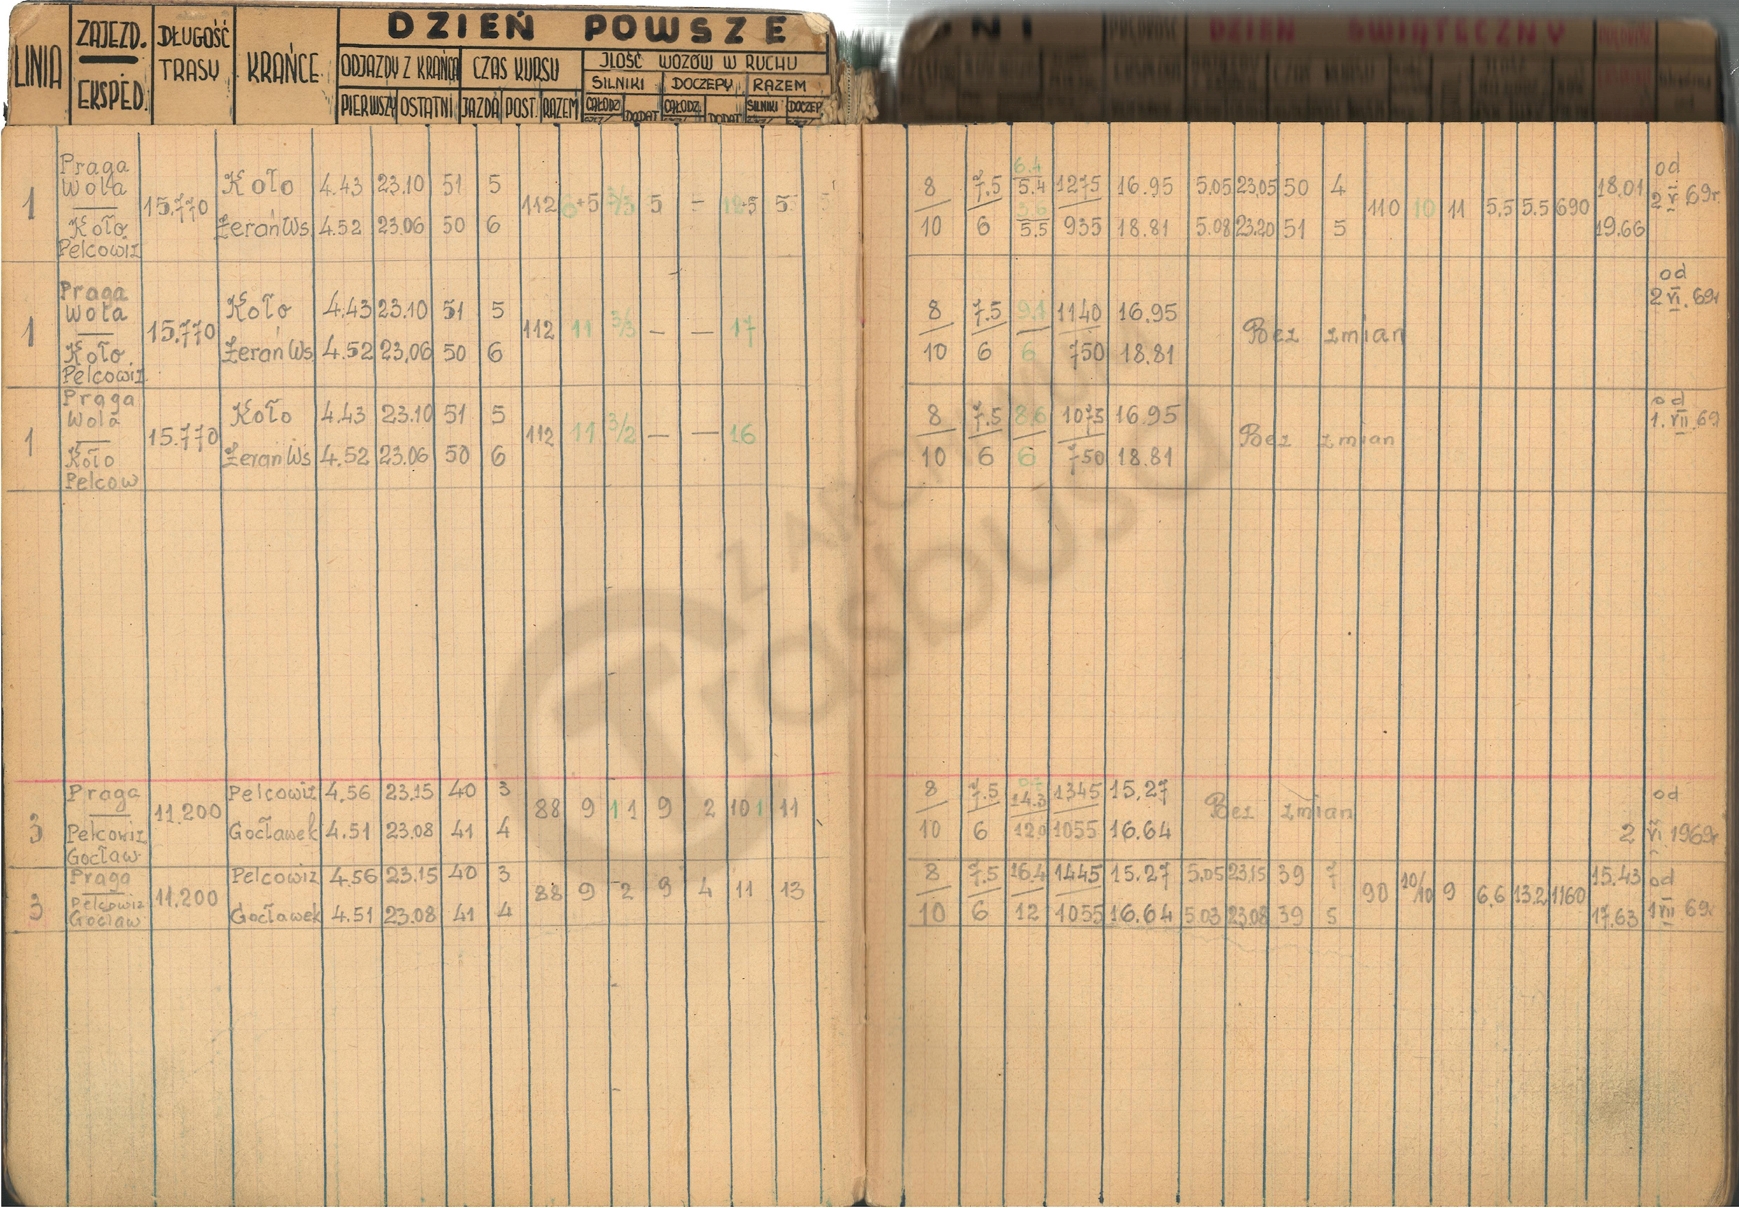 LINIA ZAJEZD. EKSPED. DŁUGOŚĆ TRASY KRAŃCE DZIEŃ POWSZE DNI DZIEŃ ŚWIĄTECZNY
ODJAZDY Z KRAŃCA CZAS KURSU ILOŚĆ WOZÓW W RUCHU
SILNIKI DOCZEPY RAZEM
PIERWSZY OSTATNI JAZDA POST. RAZEM CAŁODZ DODAT CAŁODZ DODAT SILNIKI DOCZEP
Praga
Wola
Koło
Pelcowiz
1 15.770
Koło 4.43 23.10 51 5
Żerań Ws. 4.52 23.06 50 6
112 +5 3/3 5 – +5 5
6.4
8 7.5 5.4 1275 16.95 5.05 23.05 50 4
10 6 5.5 935 18.81 5.08 23.20 51 5
110 10 11 5,5 5.5 690
18.01
19.66
od
2 V 69r.
Praga
Wola
Koło
Pelcowiz
1 15.770
Koło 4.43 23.10 51 5
Żerań Ws 4.52 23,06 50 6
112 11 3/3 — — 17
8 7.5 9.1 1140 16.95
10 6 6 750 18.81
Bez zmian
od
2 VI. 69r
Praga
Wola
Koło
Pelcow
1 15.770
Koło 4.43 23.10 51 5
Żerań Ws 4.52 23.06 50 6
112 11 3/2 — — 16
8 7.5 8.6 1075 16.95
10 6 6 750 18.81
Bez zmian
od
1. VII 69
Praga
Pelcowiz
Gocław
3 11.200
Pelcowiz 4.56 23.15 40 3
Gocławek 4.51 23.08 41 4
88 9 11 9 2 10 1 11
8 7.5 14.3 1345 15,27
10 6 12.0 1055 16.64
Bez zmian
od
2 VI 1969r
Praga
Pelcowiz
Gocław
3 11.200
Pelcowiz 4.56 23.15 40 3
Gocławek 4.51 23.08 41 4
88 9 2 9 4 11 13
8 7.5 16.4 1445 15.27 5.05 23.15 39 7
10 6 12 1055 16.64 5.03 23.08 39 5
90 10/10 9 6,6 13.2 1160
15.43
17.63
od
1 VII 69r
Z ARCHIWUM
Trasbusa